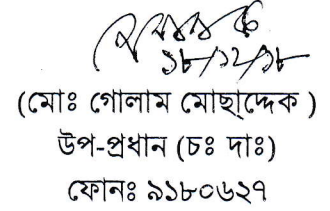 ১৮/১২/১৮
(মোঃ গোলাম মোছাদ্দেক )
উপ-প্রধান (চঃ দাঃ)
ফোনঃ ৯১৮০৬২৭